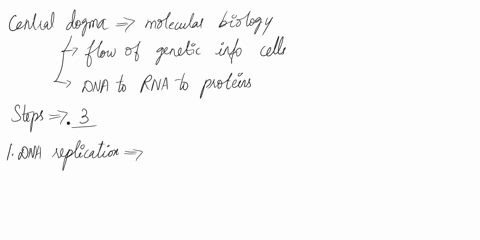 Central dogma ⇒ molecular biology
→ flow of genetic info cells
→ DNA to RNA to proteins
Steps ⇒ . 3
1. DNA replication ⇒